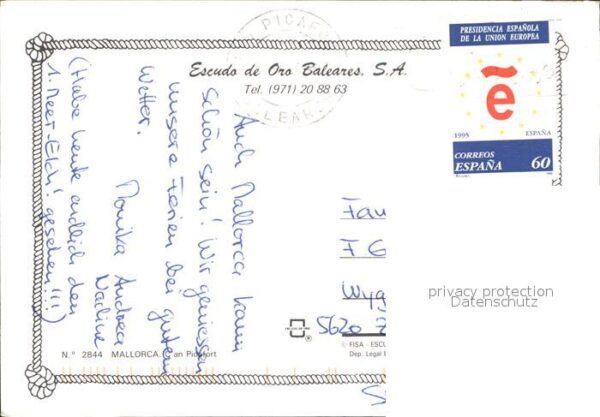 PICAF
LEAR
Escudo de Oro Baleares, S.A.
Tel. (971) 20 88 63
PRESIDENCIA ESPAÑOLA
DE LA UNION EUROPEA
ẽ
1995 ESPAÑA
CORREOS
ESPAÑA 60
Auch Mallorca kann
schön sein! Wir geniessen
unsere Ferien bei gutem
Wetter.
Monika Andrea
Nadine
(Habe heute endlich den
1. Meer-Elch! gesehen!!!)
Fam
F. G
5620
privacy protection
Datenschutz
N.º 2844 MALLORCA. Can Picafort
© FISA - ESCU
Dep. Legal